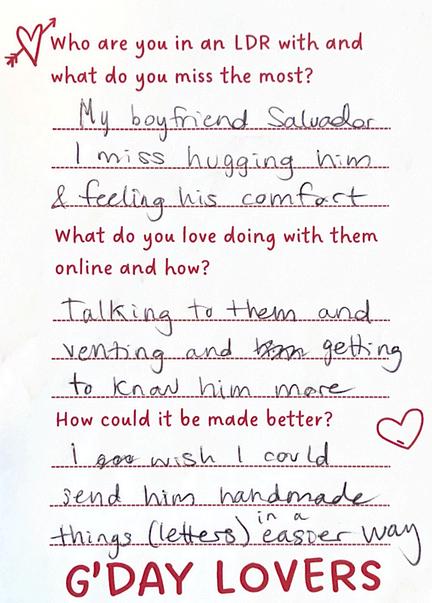 Who are you in an LDR with and
what do you miss the most?
My boyfriend Salvador
I miss hugging him
& feeling his comfort
What do you love doing with them
online and how?
Talking to them and
venting and getting
to know him more
How could it be made better?
I wish I could
send him handmade
things (letters) in a easper way
G'DAY LOVERS